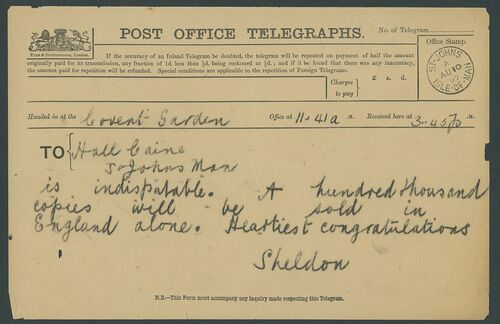 POST OFFICE TELEGRAPHS.
No. of Telegram
Office Stamp.
If the accuracy of an Inland Telegram be doubted, the telegram will be repeated on payment of half the amount
originally paid for its transmission, any fraction of 1d. less than ½d. being reckoned as ½d.; and if it be found that there was any inaccuracy,
the amount paid for repetition will be refunded. Special conditions are applicable to the repetition of Foreign Telegrams.
Charges to pay
£ s. d.
ST JOHNS
A
AU 10
97
ISLE-OF-MAN
Handed in at the Covent Garden Office at 11.41a .M. Received here at 3.45p .M.
TO Hall Caine
St Johns Man
is indisputable. A hundred thousand
copies will be sold in
England alone. Heartiest congratulations
Sheldon
N.B.—This Form must accompany any inquiry made respecting this Telegram.